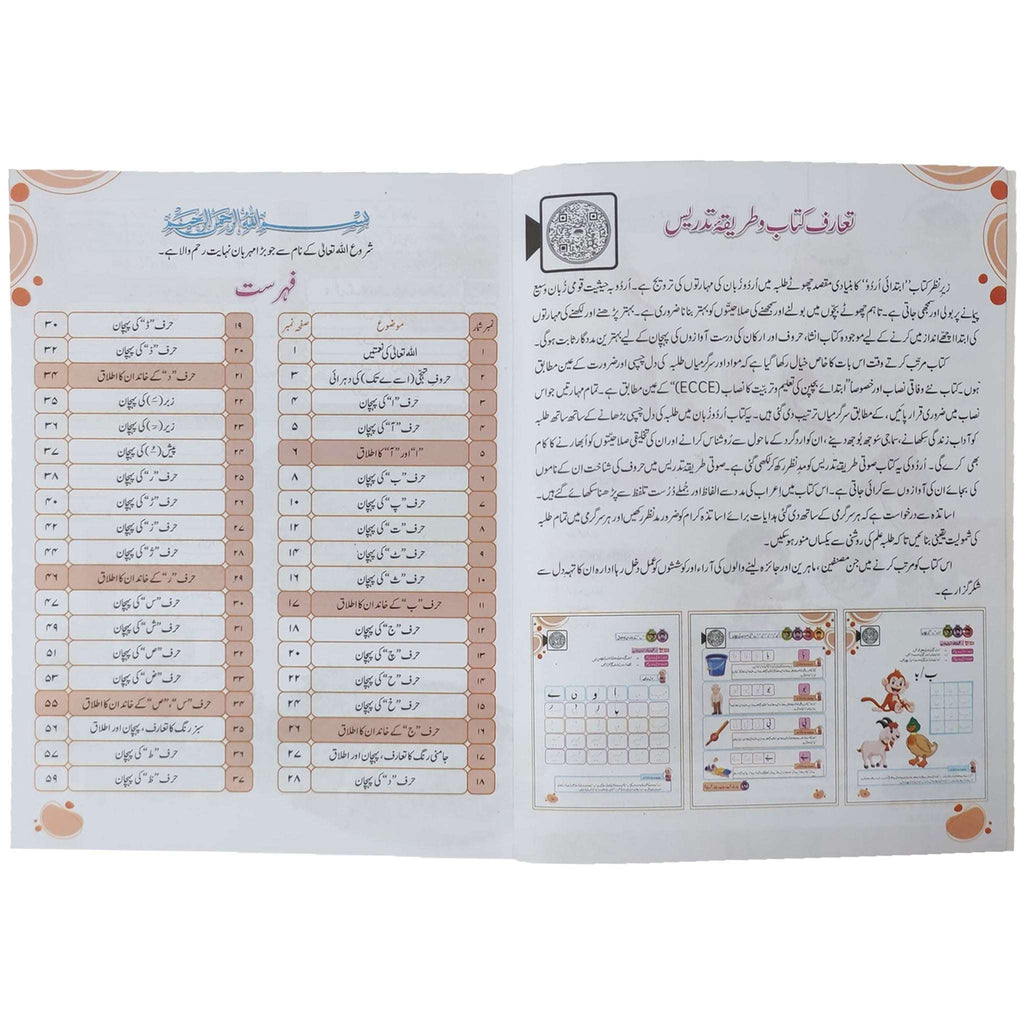 تعارف کتاب و طریقۂ تدریس
زیرِ نظر کتاب ’’ابتدائی اُردو‘‘ کا بنیادی مقصد چھوٹے طلبہ میں اُردو زبان کی مہارتوں کی ترویج ہے۔ اُردو بہ حیثیت قومی زبان وسیع
پیمانے پر بولی اور سمجھی جاتی ہے۔ تاہم چھوٹے بچوں میں بولنے اور سمجھنے کی صلاحیتوں کو بہتر بنانا ضروری ہے۔ بہتر پڑھنے اور لکھنے کی مہارتوں
کی ابتدا اچھے انداز میں کرنے کے لیے موجودہ کتاب انشا حروف اور ارکان کی درست آوازوں کی پہچان کے لیے بہترین مددگار ثابت ہوگی۔
کتاب مرتب کرتے وقت اس بات کا خاص خیال رکھا گیا ہے کہ مواد اور سرگرمیاں طلبہ کی دل چسپی اور ضرورت کے عین مطابق
ہوں۔ کتاب نئے وفاقی نصاب اور خصوصاً ’’ابتدائے بچپن کی تعلیم و تربیت کا نصاب (ECCE)‘‘ کے عین مطابق ہے۔ تمام مہارتیں جو اس
نصاب میں ضروری قرار پائیں، کے مطابق سرگرمیاں ترتیب دی گئی ہیں۔ یہ کتاب اُردو زبان میں طلبہ کی دل چسپی بڑھانے کے ساتھ ساتھ طلبہ
کو آدابِ زندگی سکھانے، سماجی سوجھ بوجھ دینے، ان کو اردگرد کے ماحول سے رُوشناس کرانے اور ان کی تخلیقی صلاحیتوں کو اُبھارنے کا کام
بھی کرے گی۔ اُردو کی یہ کتاب صوتی طریقۂ تدریس کو مدِنظر رکھ کر لکھی گئی ہے۔ صوتی طریقۂ تدریس میں حروف کی شناخت ان کے ناموں
کی بجائے ان کی آوازوں سے کرائی جاتی ہے۔ اس کتاب میں اعراب کی مدد سے الفاظ اور جملے دُرست تلفظ سے پڑھنا سکھائے گئے ہیں۔
اساتذہ سے درخواست ہے کہ ہر سرگرمی کے ساتھ دی گئی ہدایات برائے اساتذہ کرام کو ضرور مدنظر رکھیں اور ہر سرگرمی میں تمام طلبہ
کی شمولیت یقینی بنائیں تاکہ طلبہ علم کی روشنی سے یکساں منور ہو سکیں۔
اس کتاب کو مرتب کرنے میں جن مصنفین، ماہرین اور جائزہ لینے والوں کی آراء اور کوششوں کو عمل دخل رہا ادارہ ان کا تہہ دل سے
شکر گزار ہے۔
ب / با
بسم اللہ الرحمن الرحیم
شروع اللہ تعالیٰ کے نام سے جو بڑا مہربان نہایت رحم والا ہے۔
فہرست
نمبر شمار موضوع صفحہ نمبر
۱ اللہ تعالیٰ کی نعمتیں ۱
۲ حروفِ تہجی (ا سے ے تک) کی دہرائی ۳
۳ حرف ”ا“ کی پہچان ۴
۴ حرف ”آ“ کی پہچان ۵
۵ ”ا“ اور ”آ“ کا اطلاق ۶
۶ حرف ”ب“ کی پہچان ۸
۷ حرف ”پ“ کی پہچان ۱۰
۸ حرف ”ت“ کی پہچان ۱۲
۹ حرف ”ٹ“ کی پہچان ۱۴
۱۰ حرف ”ث“ کی پہچان ۱۶
۱۱ حرف ”ب“ کے خاندان کا اطلاق ۱۷
۱۲ حرف ”ج“ کی پہچان ۱۸
۱۳ حرف ”چ“ کی پہچان ۲۰
۱۴ حرف ”ح“ کی پہچان ۲۲
۱۵ حرف ”خ“ کی پہچان ۲۴
۱۶ حرف ”ج“ کے خاندان کا اطلاق ۲۶
۱۷ جامنی رنگ کا تعارف، پہچان اور اطلاق ۲۷
۱۸ حرف ”د“ کی پہچان ۲۸
۱۹ حرف ”ڈ“ کی پہچان ۳۰
۲۰ حرف ”ذ“ کی پہچان ۳۲
۲۱ حرف ”د“ کے خاندان کا اطلاق ۳۴
۲۲ زبر (َ) کی پہچان ۳۵
۲۳ زیر (ِ) کی پہچان ۳۶
۲۴ پیش (ُ) کی پہچان ۳۷
۲۵ حرف ”ر“ کی پہچان ۳۸
۲۶ حرف ”ڑ“ کی پہچان ۴۰
۲۷ حرف ”ز“ کی پہچان ۴۲
۲۸ حرف ”ژ“ کی پہچان ۴۴
۲۹ حرف ”ر“ کے خاندان کا اطلاق ۴۶
۳۰ حرف ”س“ کی پہچان ۴۷
۳۱ حرف ”ش“ کی پہچان ۴۹
۳۲ حرف ”ص“ کی پہچان ۵۱
۳۳ حرف ”ض“ کی پہچان ۵۳
۳۴ حرف ”س“، ”ص“ کے خاندان کا اطلاق ۵۵
۳۵ سبز رنگ کا تعارف، پہچان اور اطلاق ۵۶
۳۶ حرف ”ط“ کی پہچان ۵۷
۳۷ حرف ”ظ“ کی پہچان ۵۹